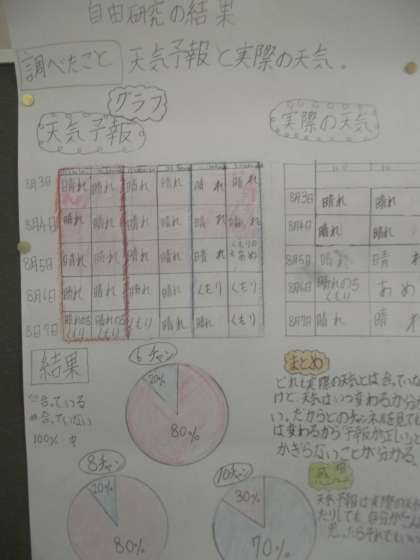 自由研究の結果
調べたこと 天気予報と実際の天気。
グラフ
天気予報
実際の天気
8月3日 晴れ 晴れ 晴れ 晴れ 晴れ 晴れ
8月4日 晴れ 晴れ 晴れ 晴れ 晴れ 晴れ
8月5日 晴れ 晴れ 晴れ 晴れ 晴れ
8月6日 晴れ 晴れ 晴れ 晴れ くもり くもり
8月7日 晴れのちくもり 晴れのちくもり くもり 晴れ 晴れ くもり
8月3日 晴れ 晴れ
8月4日 晴れ 晴れ
8月5日 晴れ 晴れ
8月6日 晴れのちくもり あめ
8月7日 晴れ 晴
結果
合っている
合っていない
100% 中
6チャン
20%
80%
8チャン
20%
80%
10チャン
30%
70%
まとめ
どれも実際の天気とは合っていな
けど天気はいつ変わるか分か
い。だからどのチャンネルを見ても
は変わるから予報が正しいと
かぎらないことが分かる
感
天気予報は実際の天
たりしても自分が
思ったらそれでい